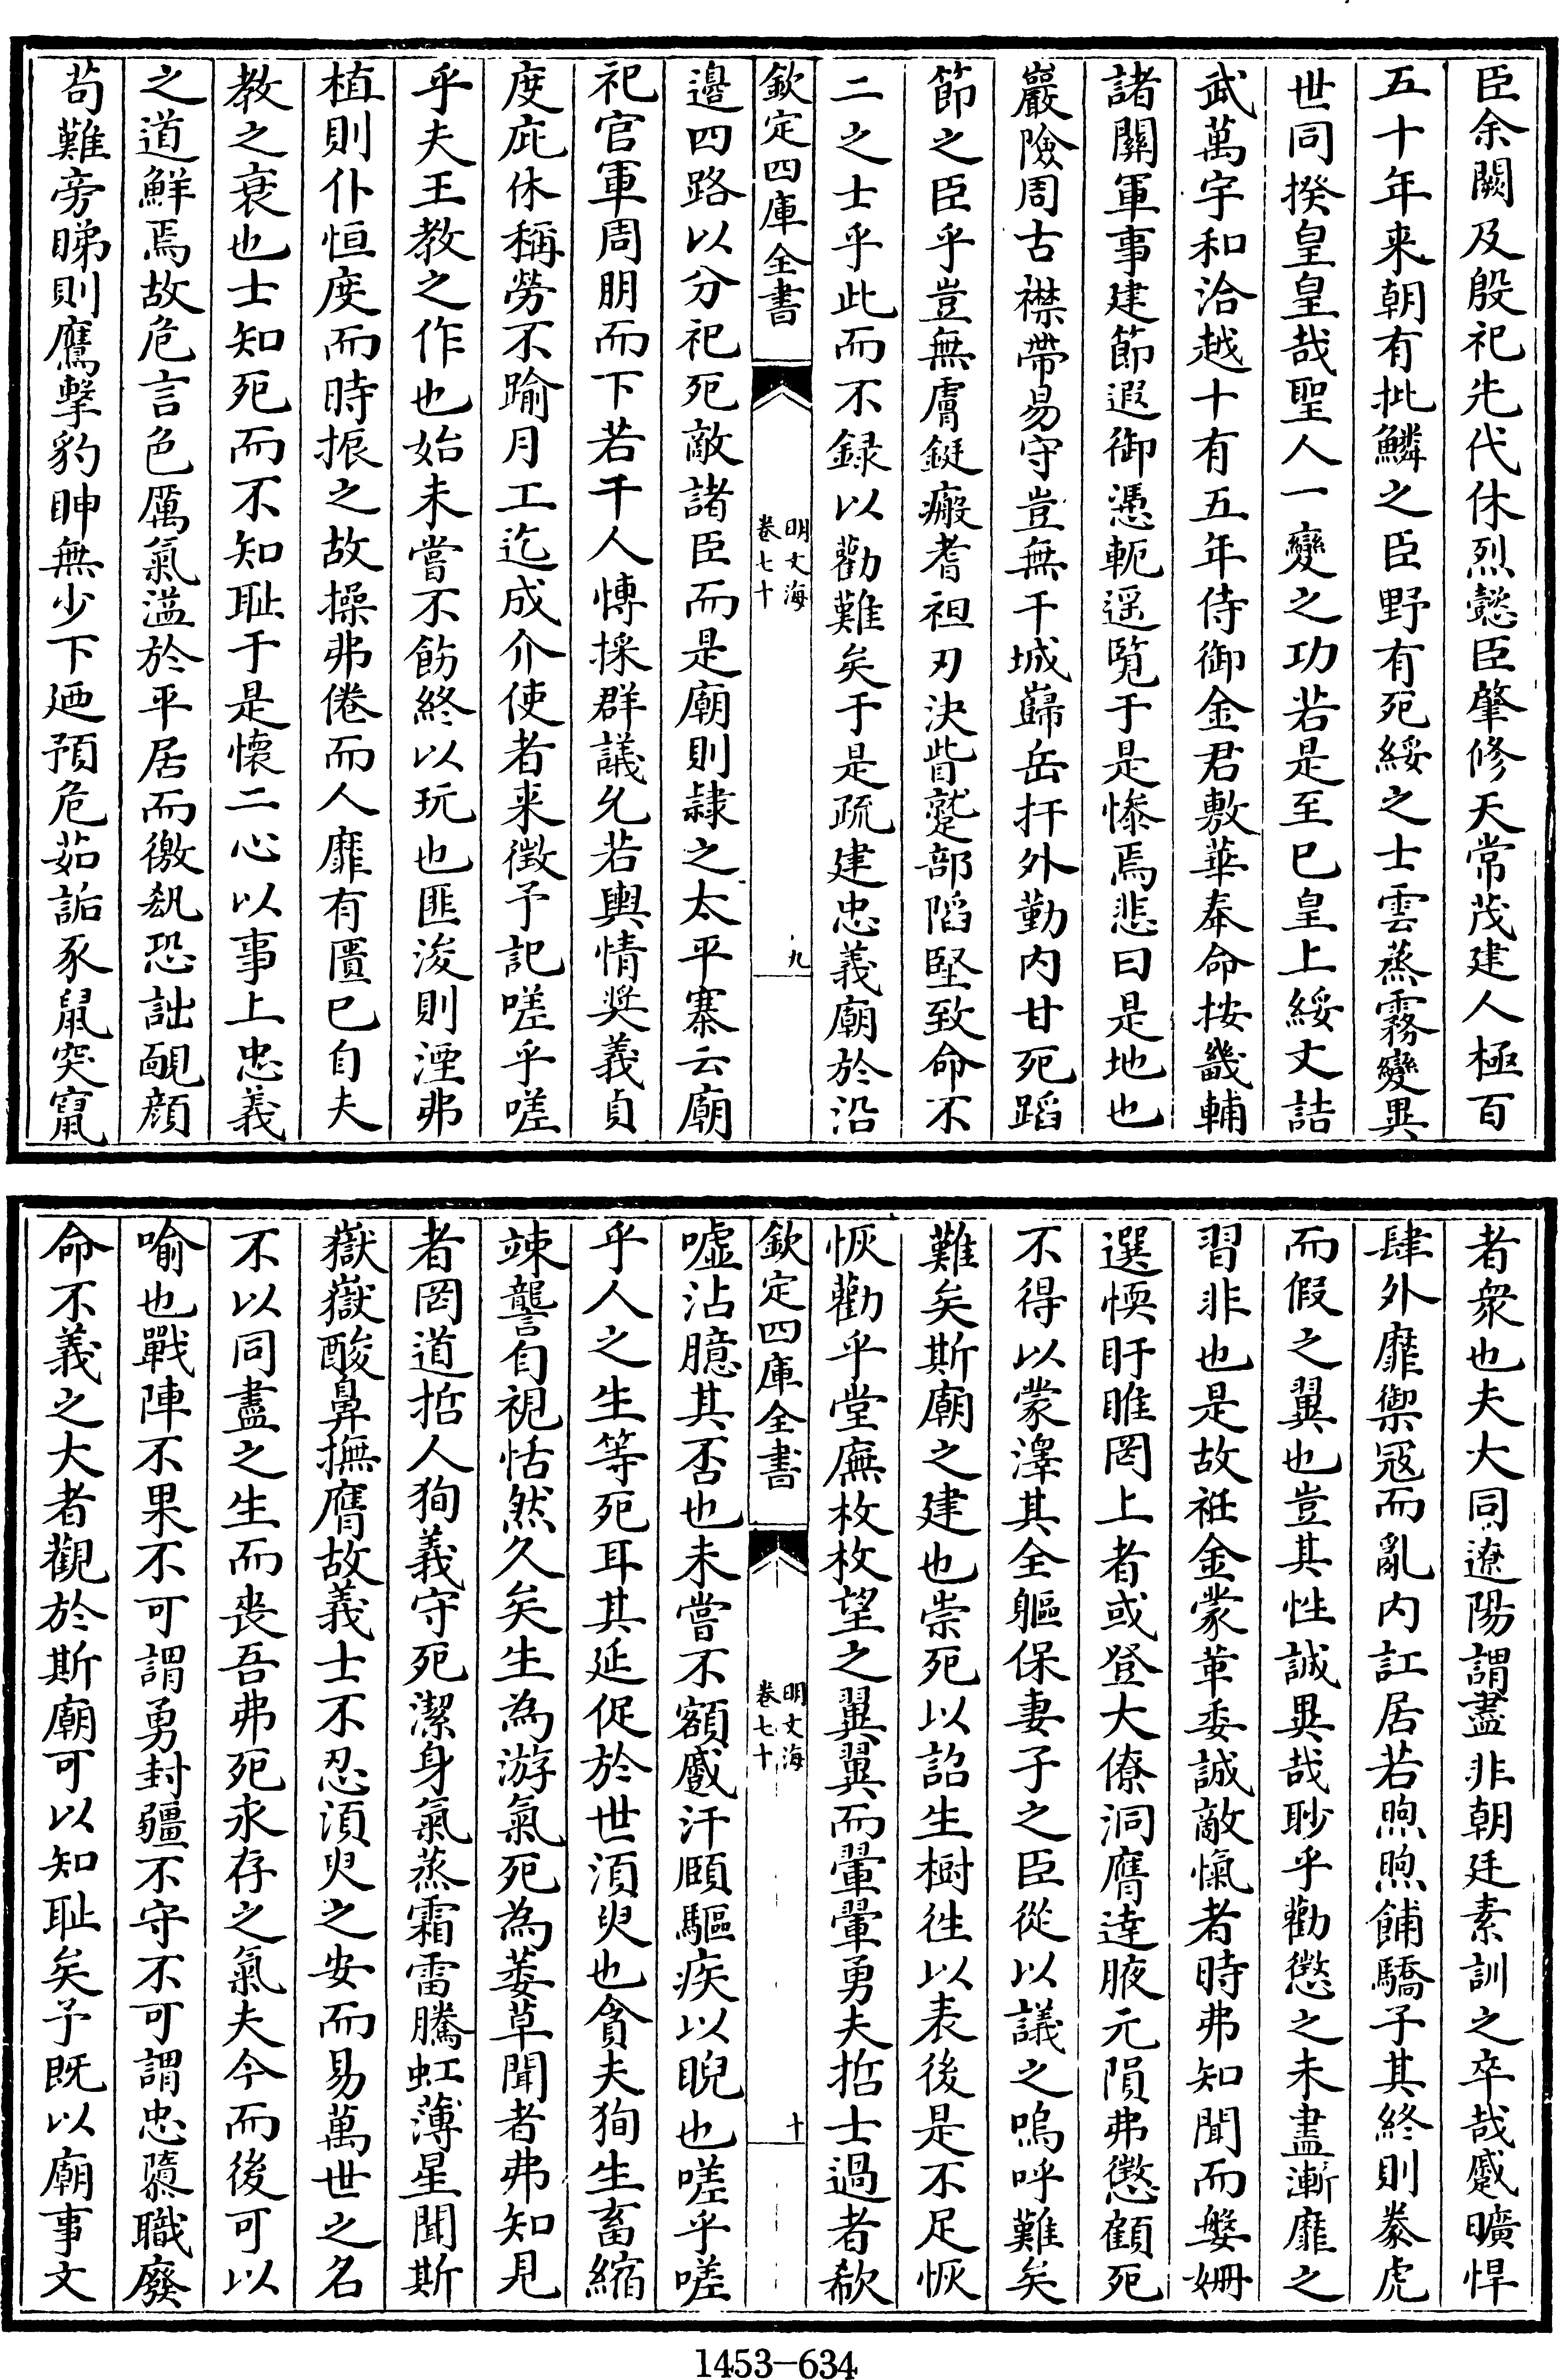 臣余闕及殷祀先代休烈懿臣肇修天常茂建人極百
五十年来朝有批鱗之臣野有死綏之士雲蒸霧變異
世同揆皇皇哉聖人一變之功若是至巳皇上綏丈詰
武萬宇和洽越十有五年侍御金君敷華奉命按畿輔
諸關軍事建節遐御憑軛遥覧于是慘焉悲曰是地也
巖險周古襟帶易守豈無干城巋岳扞外勤内甘死蹈
節之臣乎豈無膚鋌瘢耆袒刃決眥蹵部蹈堅致命不
二之士乎此而不録以勸難矣于是疏建忠義廟於沿
欽定四庫全書
明文海
卷七十
九
邉四路以分祀死敵諸臣而是廟則隷之太平寨云廟
祀官軍周朋而下若干人愽採群議允若輿情奨義貞
度庇休稱勞不踰月工迄成介使者来徴予記嗟乎嗟
乎夫王教之作也始未嘗不飭終以玩也匪浚則湮弗
植則仆恒度而時振之故操弗倦而人靡有匱巳自夫
教之衰也士知死而不知耻于是懷二心以事上忠義
之道鮮焉故危言色厲氣溢於平居而徼𦅸恐詘靦顔
苟難旁睇則鷹擊豹眒無少下廼預危茹詬豕鼠突竄
者衆也夫大同遼陽謂盡非朝廷素訓之卒哉慼曠悍
肆外靡禦冦而亂内訌居若煦煦餔驕子其終則豢虎
而假之翼也豈其性誠異哉眇乎勸懲之未盡漸靡之
習非也是故衽金蒙革委誠敵愾者時弗知聞而媻姍
選愞盱睢罔上者或登大僚洞膺達腋元隕弗懲顧死
不得以蒙澤其全軀保妻子之臣從以議之嗚呼難矣
難矣斯廟之建也崇死以詔生樹徃以表後是不足恢
恢勸乎堂廡枚枚望之翼翼而翬翬勇夫哲士過者欷
欽定四庫全書
明文海
卷七十
十
嘘沾臆其否也未嘗不額慼汗頤驅疾以睨也嗟乎嗟
乎人之生等死耳其延促於世湏臾也貪夫狥生畜縮
竦讋旬視恬然久矣生為游氣死為萎草聞者弗知見
者罔道哲人狥義守死潔身氣蒸霜雷騰虹薄星聞斯
嶽嶽酸鼻撫膺故義士不忍湏臾之安而易萬世之名
不以同盡之生而喪吾弗死永存之氣夫今而後可以
喻也戰陣不果不可謂勇封疆不守不可謂忠隳職廢
命不義之大者觀於斯廟可以知耻矣予既以廟事文
1453—634